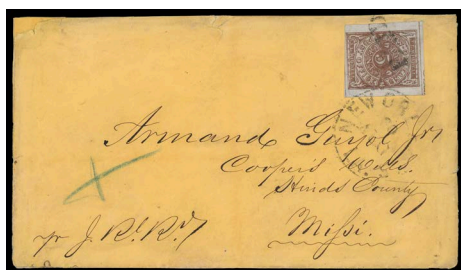 5
NEW OR
Armand Guyol Jr
Cooper's Wells
Hinds County
Missi.
pr J. R. Rd